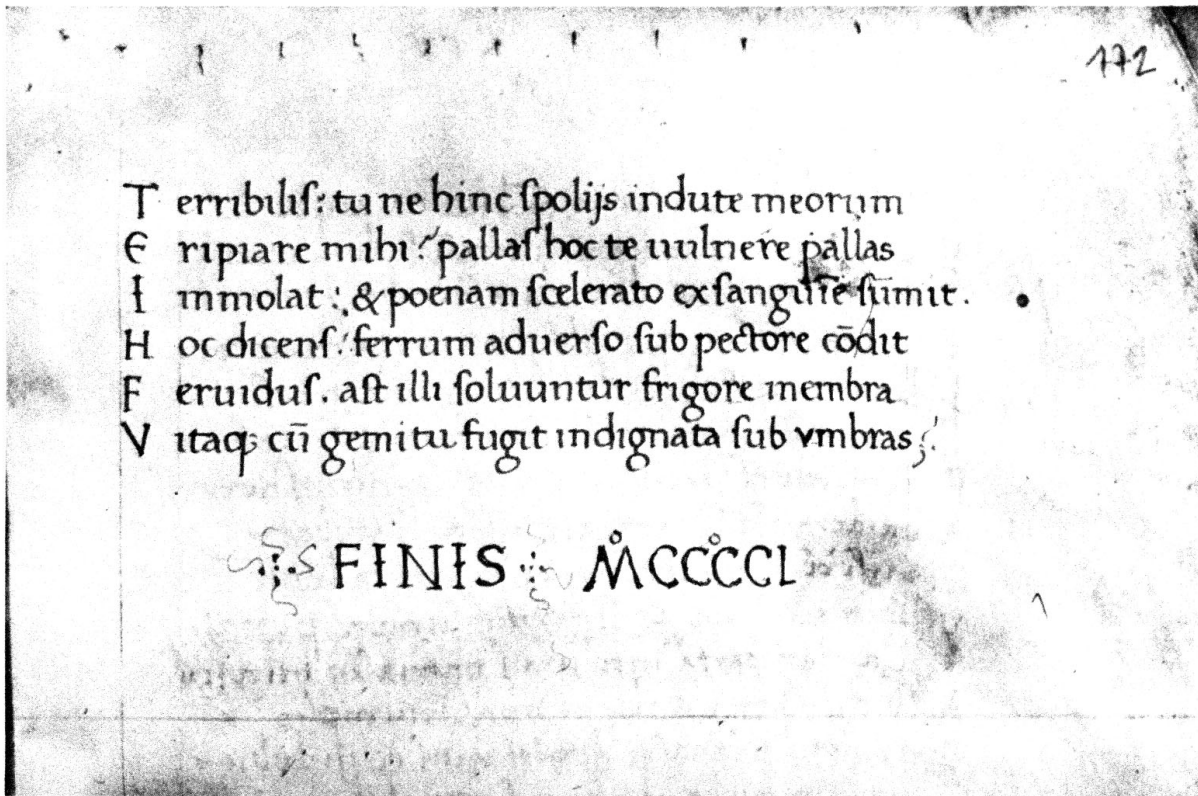 172
T erribiliſ: tu ne hinc ſpolijs indute meorum
E ripiare mihi? pallaſ hoc te uulnere pallas
I mmolat: & poenam ſcelerato ex ſanguīe ſumit.
H oc dicenſ: ferrum aduerſo ſub pectore cōdit
F eruiduſ. aſt illi ſoluuntur frigore membra
V itaqꝫ cū gemitu fugit indignata ſub vmbras;
FINIS M̊CCC̊CCL